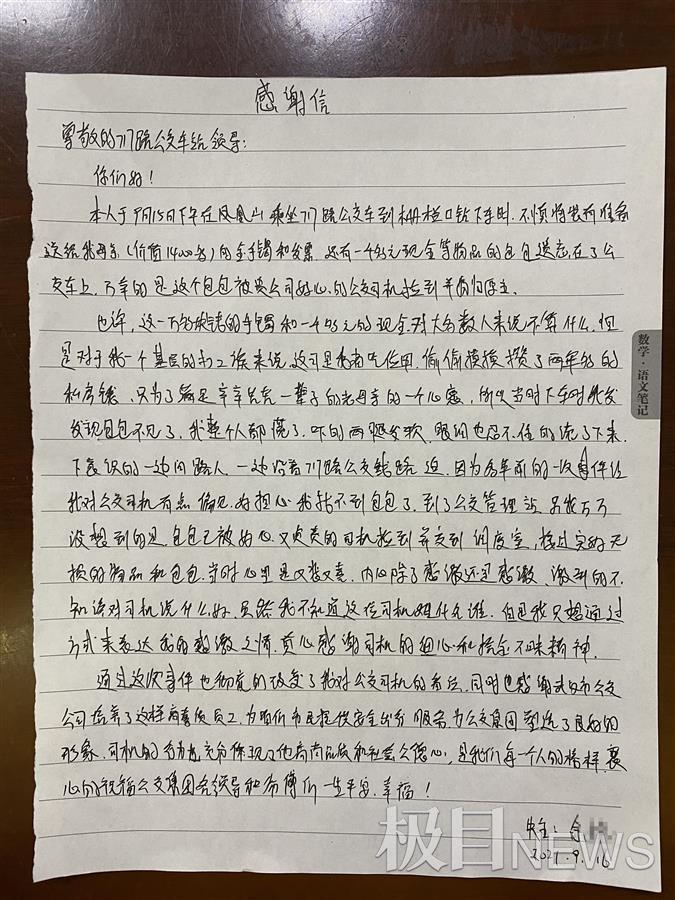 感谢信
尊敬的717路公交车站领导：
你们好！
本人于9月15日下午在凤凰山乘坐717路公交车到栅栏口站下车时.不慎将装有准备
送给我母亲(价值14000多)的金手镯和发票.还有一千多元现金等物品的包包遗忘在了公
交车上.万幸的是这个包包被贵公司好心的公交司机捡到并归还原主.
也许,这一万多块钱的手镯和一千多元的现金.对大多数人来说不算什么.但
是对于我一个基层的打工族来说,这可是我省吃俭用.偷偷摸摸攒了两年多的
私房钱.只为了满足辛辛苦苦一辈子的老母亲的一个心愿,所以当时下车时我发
发现包包不见了,我整个人都懵了.吓的两腿发软.眼泪也忍不住的流了下来.
下意识的一边问路人.一边沿着717路公交线路追.因为多年前的一次事件让
我对公交司机有点偏见.好担心我找不到包包了.到了公交管理站.另我万万
没想到的是包包已被好心.又负责的司机捡到并交到调度室,接过完好无
损的物品和包包.当时心里是又惊又喜.内心除了感激还是感激,激动的不
知该对司机说什么好.虽然我不知道这位司机姓什名谁.但是我只想通过
方式来表达我的感激之情.衷心感谢司机的细心和拾金不昧精神.
通过这次事件也彻底的改变了我对公交司机的看法.同时也感谢武汉市公交
公司培养了这样高素质员工,为咱们市民提供安全出行服务.为公交集团塑造了良好的
形象.司机的行为充分体现了他高尚品质和社会公德心.是我们每一个人的榜样.衷
心的祝福公交集团各领导和师傅们一生平安.幸福!
失主:余
2021.9.16
数学·语文笔记
极目NEWS